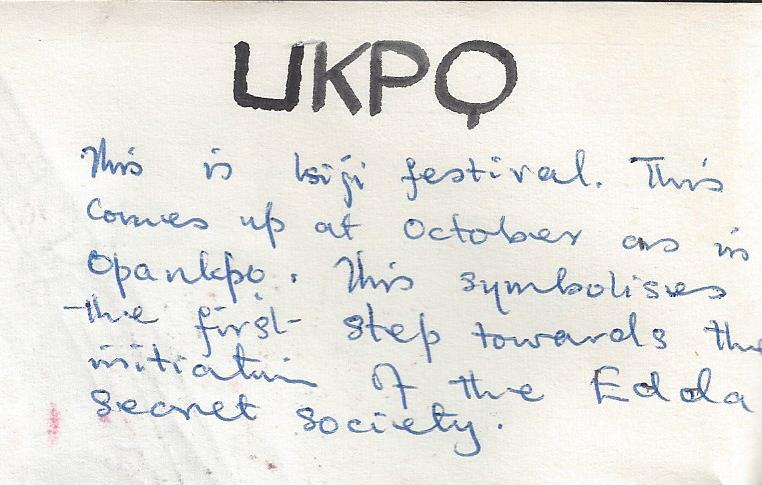 UKPỌ
This is Isiji festival. This
comes up at October as in
Opankpọ. This symbolises
the first step towards the
initiation of the Edda
secret society.